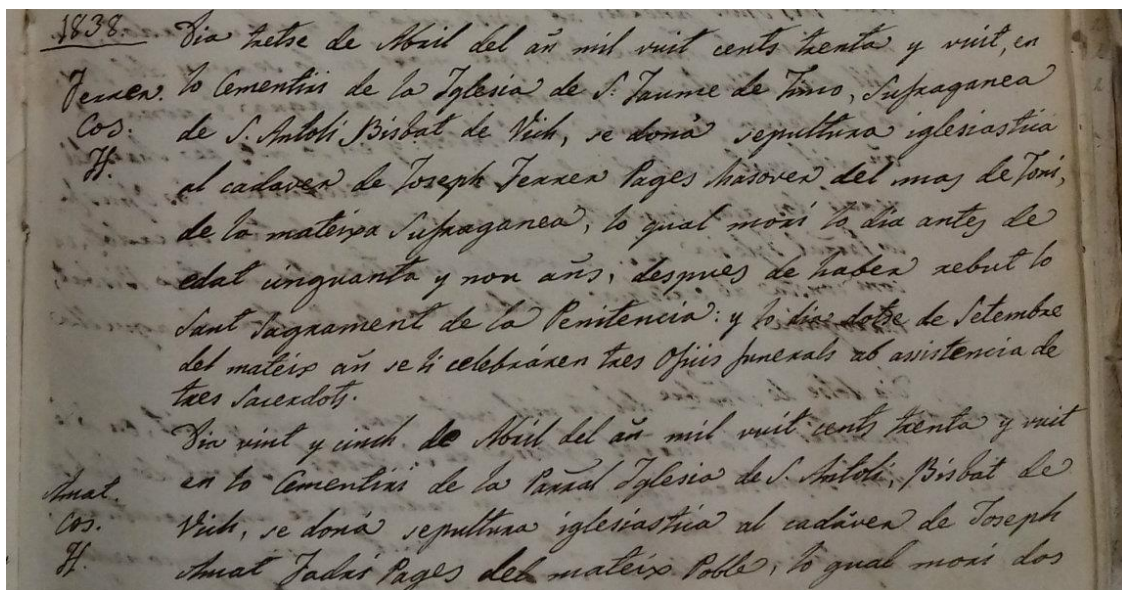 1838
Dia tretse de Abril del añ mil vuit cents trenta y vuit, en
Ferrer. lo Cementiri de la Iglesia de S. Jaume de Timo, Sufraganea
Cos. de S. Antoli Bisbat de Vich, se doná sepultura iglesiastica
H. al cadaver de Joseph Ferrer Pages Masover del mas de Toni,
de la mateixa Sufraganea, lo qual morí lo dia antes de
edat cinquanta y nou añs, despues de haber rebut lo
Sant Sagrament de la Penitencia: y lo dia dotse de Setembre
del mateix añ se li celebráren tres Oficis funerals ab assistencia de
tres Sacerdots.
Dia vint y cinch de Abril del añ mil vuit cents trenta y vuit
Amat. en lo Cementiri de la Parral Iglesia de S. Antoli, Bisbat de
Cos. Vich, se doná sepultura iglesiastica al cadáver de Joseph
H. Amat Fadrí Pages del mateix Poble, lo qual morí dos